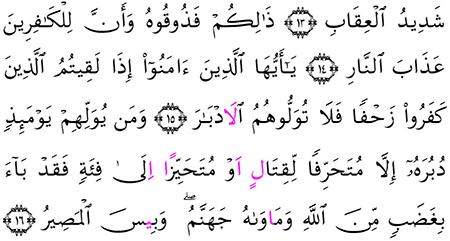 شَدِيدُ ٱلْعِقَابِ ۝١٣ ذَٰلِكُمْ فَذُوقُوهُ وَأَنَّ لِلْكَٰفِرِينَ
عَذَابَ ٱلنَّارِ ۝١٤ يَٰٓأَيُّهَا ٱلَّذِينَ ءَامَنُوٓاْ إِذَا لَقِيتُمُ ٱلَّذِينَ
كَفَرُواْ زَحْفًا فَلَا تُوَلُّوهُمُ ٱلَادْبَٰرَ ۝١٥ وَمَن يُوَلِّهِمْ يَوْمَئِذٍ
دُبُرَهُۥٓ إِلَّا مُتَحَرِّفًا لِّقِتَالٍ اَوْ مُتَحَيِّزًا اِلَىٰ فِئَةٍ فَقَدْ بَآءَ
بِغَضَبٍ مِّنَ ٱللَّهِ وَمَاوَىٰهُ جَهَنَّمُ ۖ وَبِيسَ ٱلْمَصِيرُ ۝١٦